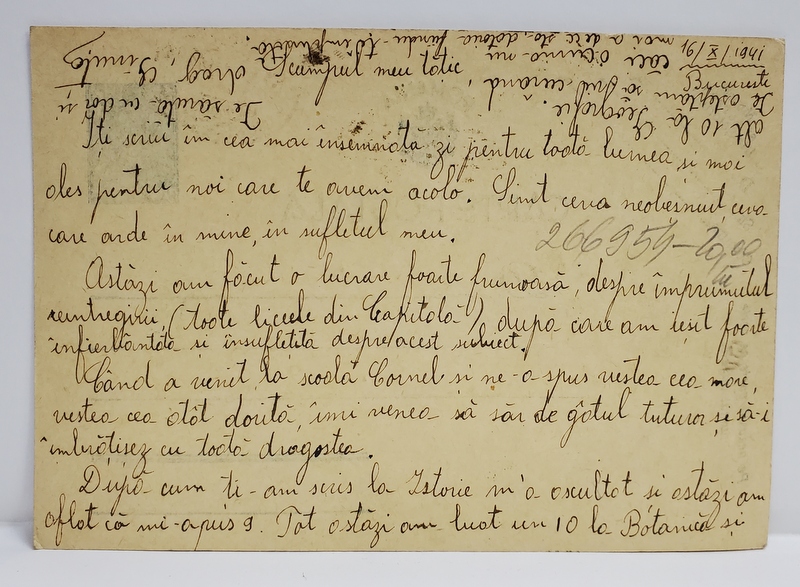 16/X/1941
București
Scumpul meu tătic
Îți scriu în cea mai însemnată zi pentru toată lumea și mai
ales pentru noi care te avem acolo. Simt ceva neobișnuit, ceva
care arde în mine, în sufletul meu.
266954-20,00
Astăzi am făcut o lucrare foarte frumoasă, despre împrumutul
reîntregirii, (toate liceele din Capitală) după care am ieșit foarte
înfierbântată și însuflețită despre acest subiect.
Când a venit la școală Cornel și ne-a spus vestea cea mare,
vestea cea atât dorită, îmi venea să sar de gâtul tuturor și să-i
îmbrățișez cu toată dragostea.
După cum ți-am scris la Istorie m'a ascultat și astăzi am
aflat că mi-a pus 9. Tot astăzi am luat un 10 la Botanică și
alt 10 la Geografie.
Te așteptăm să vii curând,
căci nu
mai
Te sărută cu dor și
drag,